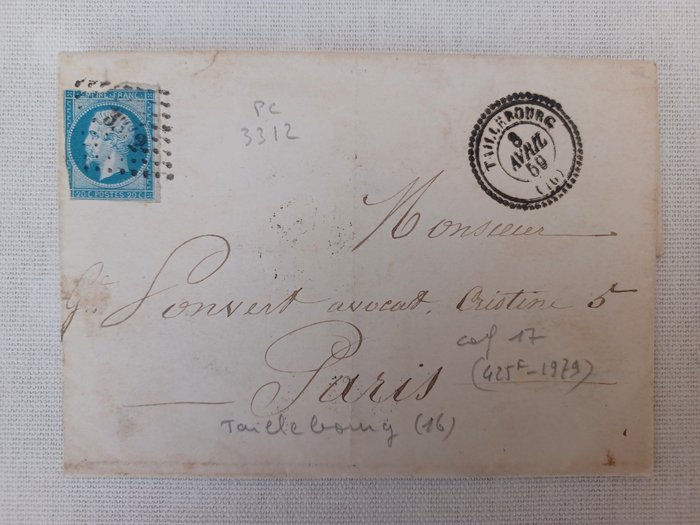 EMPIRE FRANC
3312
20 C POSTES 20 C
PC
3312
TAILLEBOURG
8
AVRIL
59
(16)
Monsieur
Gt Convert avocat, Cristine 5
Paris
cof 17
(425F-1979)
Taillebourg (16)